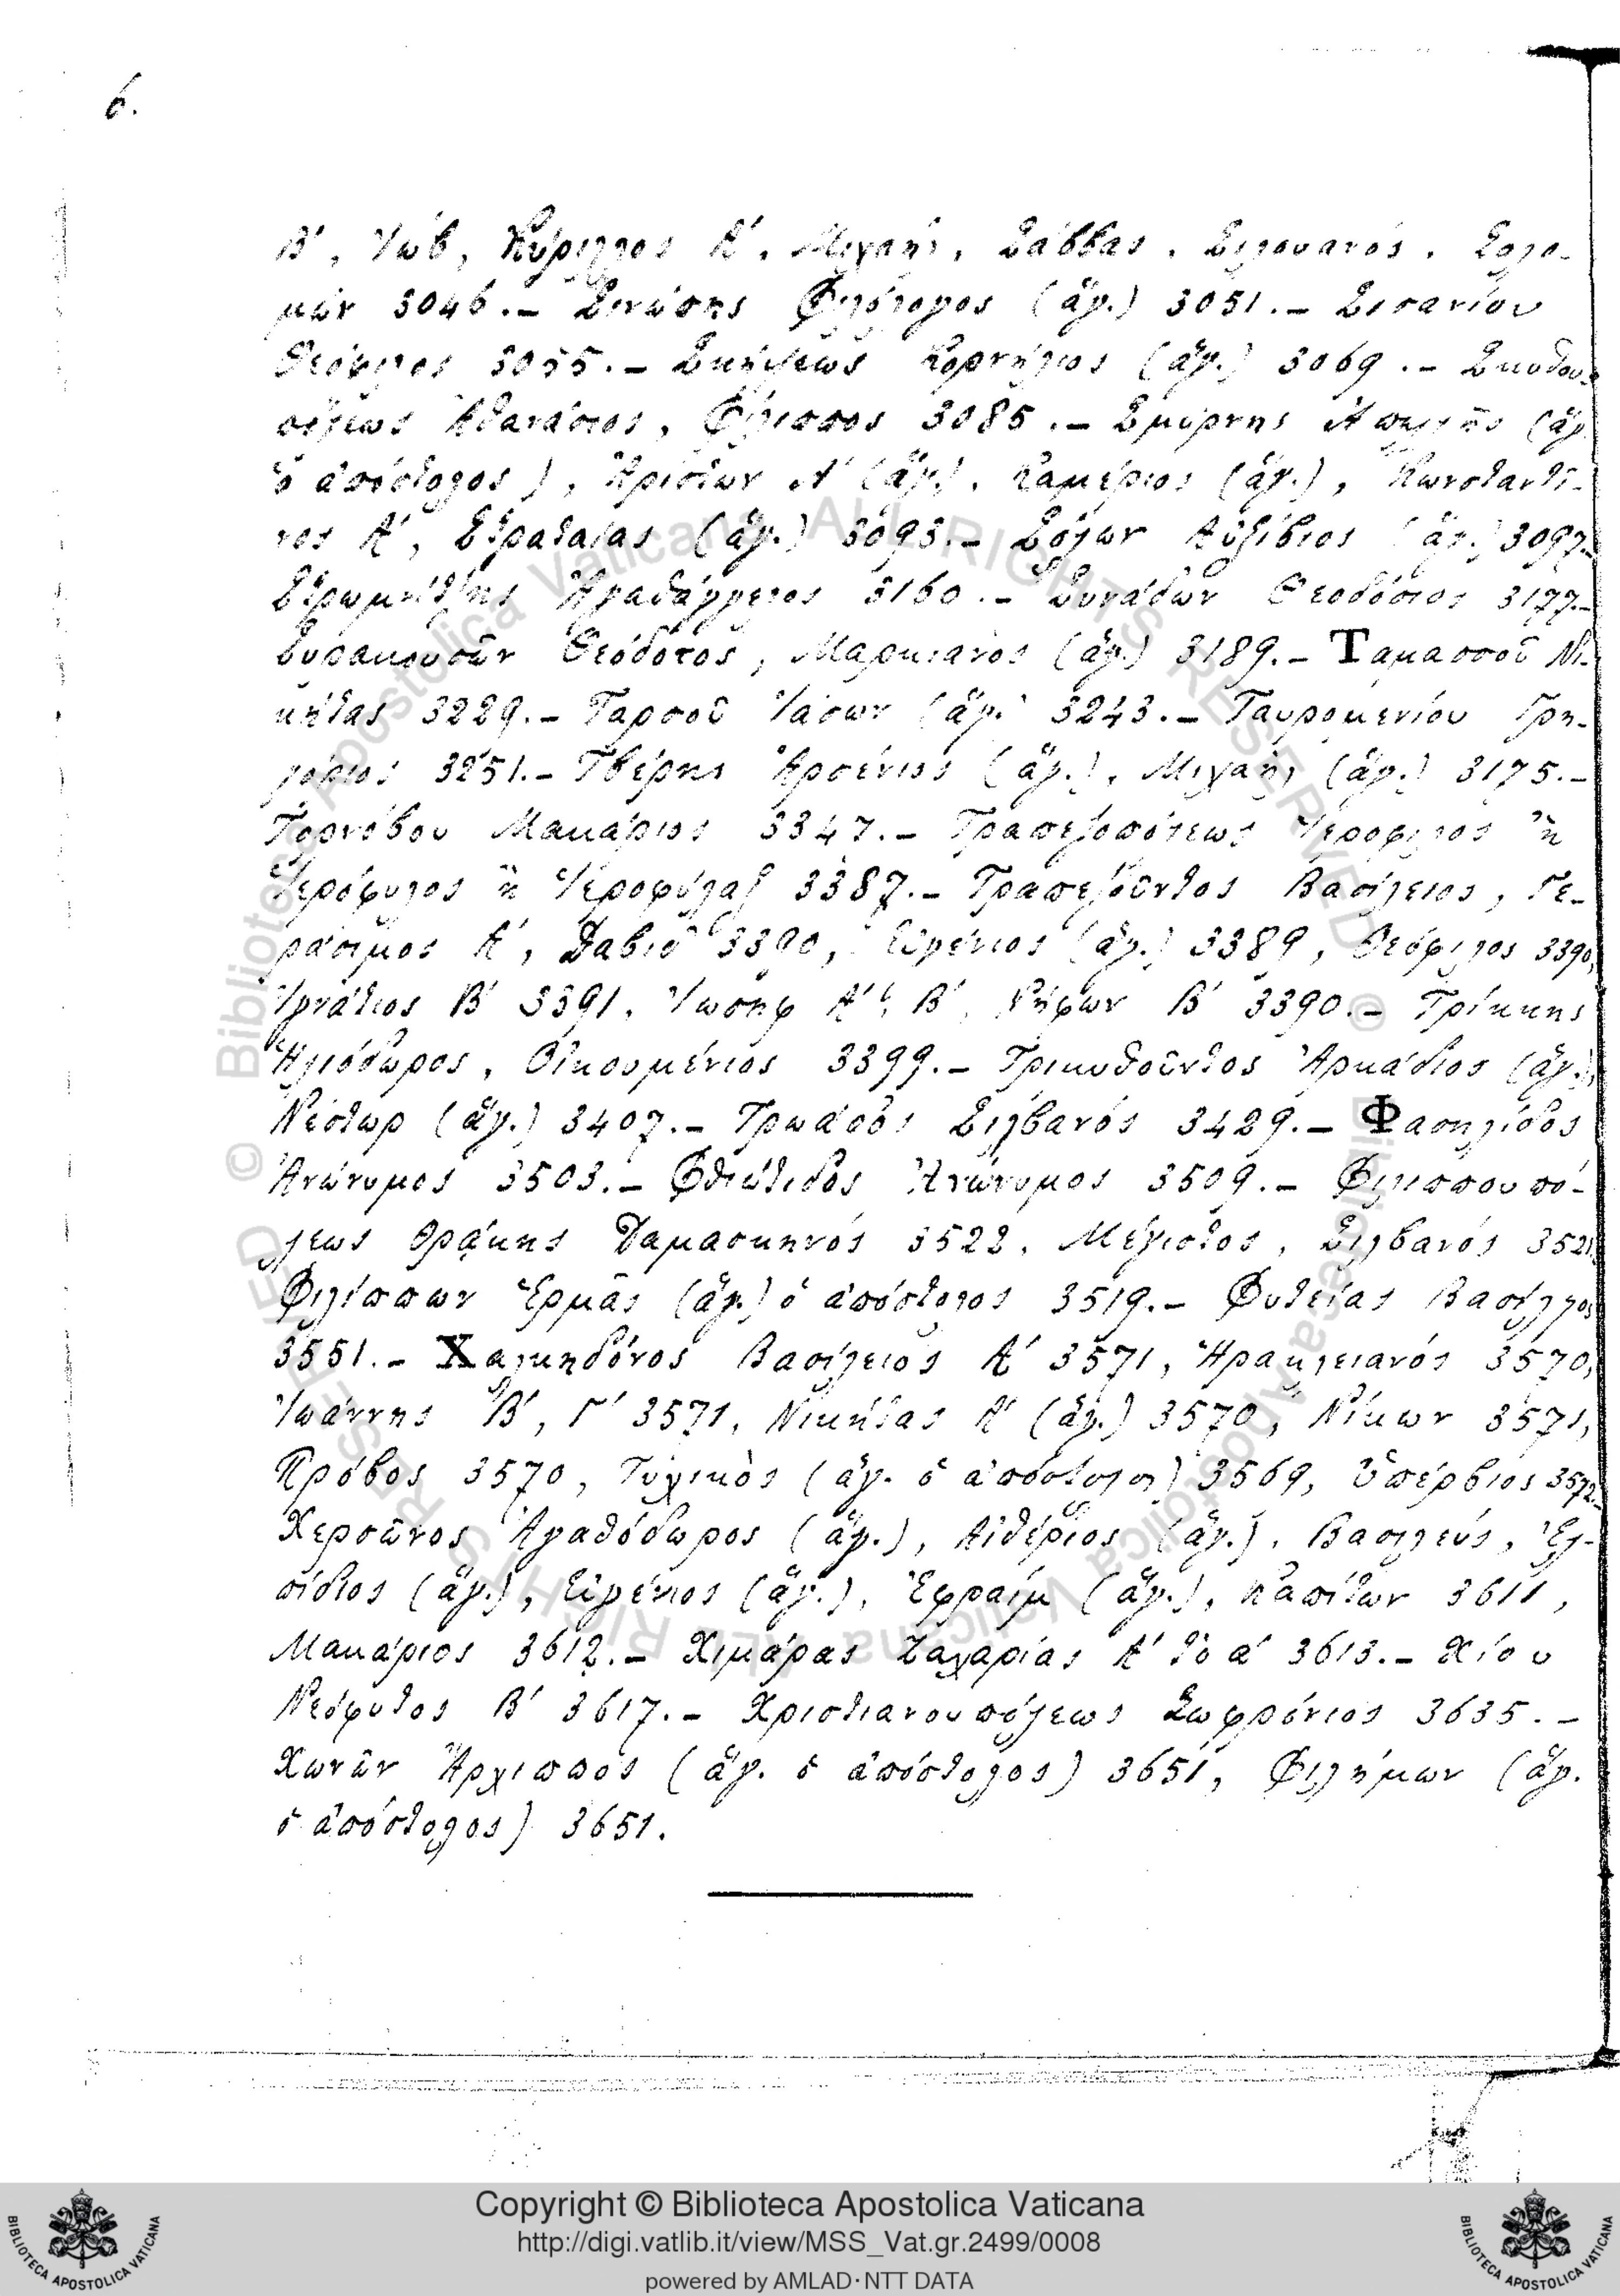 6.
Β΄, Ἰώβ, Κύριλλος Α΄, Μιχαήλ, Σάββας, Σιλουανός, Σολο-
μών 3046.– Σινώπης Φιλόλογος (ἅγ.) 3051.– Σισανίου
Θεόφιλος 3055.– Σκήψεως Κορνήλιος (ἅγ.) 3069.– Σκυθου-
πόλεως Ἀθανάσιος, Φίλιππος 3085.– Σμύρνης Ἀπελλῆς (ἅγ.
ὁ ἀπόστολος), Ἀρίστων Α΄ (ἅγ.), Καμέριος (ἅγ.), Κωνσταντῖ-
νος Α΄, Στραταίας (ἅγ.) 3093.– Σόλων Αὐξίβιος (ἅγ.) 3097.–
Στρωμνίτζης Ἀγαθάγγελος 3160.– Συνάδων Θεοδόσιος 3177.–
Συρακουσῶν Θεόδοτος, Μαρκιανὸς (ἅγ.) 3189.– Ταμασσοῦ Νι-
κήτας 3229.– Ταρσοῦ Ἰάσων (ἅγ.) 3243.– Ταυρομενίου Γρη-
γόριος 3251.– Τβέρης Ἀρσένιος (ἅγ.), Μιχαήλ (ἅγ.) 3175.–
Τορνόβου Μακάριος 3347.– Τραπεζοπόλεως Ἱερόφιλος ἢ
Ἱερόφυλος ἢ Ἱεροφύλαξ 3387.– Τραπεζοῦντος Βασίλειος, Γε-
ράσιμος Α΄, Δαβίδ 3390, Εὐγένιος (ἅγ.) 3389, Θεόφιλος 3390,
Ἰγνάτιος Β΄ 3391, Ἰωσήφ Α΄, Β΄, Νήφων Β΄ 3390.– Τρίκκης
Ἡλιόδωρος, Οἰκουμένιος 3399.– Τριμυθοῦντος Ἀρκάδιος (ἅγ.),
Νέστωρ (ἅγ.) 3407.– Τρωάδος Σιλβανός 3429.– Φασηλίδος
Ἀνώνυμος 3503.– Φθιώτιδος Ἀνώνυμος 3509.– Φιλιππουπό-
λεως Θρᾴκης Δαμασκηνός 3522, Μέγιστος, Σιλβανός 3521,
Φιλίππων Ἑρμᾶς (ἅγ.) ὁ ἀπόστολος 3519.– Φυτείας Βασίλλιος
3551.– Χαλκηδόνος Βασίλειος Α΄ 3571, Ἡρακλειανός 3570,
Ἰωάννης Β΄, Γ΄ 3571, Νικήτας Α΄ (ἅγ.) 3570, Νίκων 3571,
Πρόβος 3570, Τυχικὸς (ἅγ. ὁ ἀπόστολος) 3569, Ὑπέρβιος 3572.–
Χερσῶνος Ἀγαθόδωρος (ἅγ.), Αἰθέριος (ἅγ.), Βασιλεύς, Ἐλ-
πίδιος (ἅγ.), Εὐγένιος (ἅγ.), Ἐφραίμ (ἅγ.), Καπίτων 3611,
Μακάριος 3612.– Χιμάρας Ζαχαρίας Α΄ τὸ α΄ 3613.– Χίου
Νεόφυτος Β΄ 3617.– Χριστιανουπόλεως Σωφρόνιος 3635.–
Χωνῶν Ἄρχιππος (ἅγ. ὁ ἀπόστολος) 3651, Φιλήμων (ἅγ.
ὁ ἀπόστολος) 3651.
© Biblioteca Apostolica Vaticana ALL RIGHTS RESERVED
© Biblioteca Apostolica Vaticana ALL RIGHTS RESERVED
Copyright © Biblioteca Apostolica Vaticana
http://digi.vatlib.it/view/MSS_Vat.gr.2499/0008
powered by AMLAD·NTT DATA
BIBLIOTECA APOSTOLICA VATICANA
BIBLIOTECA APOSTOLICA VATICANA